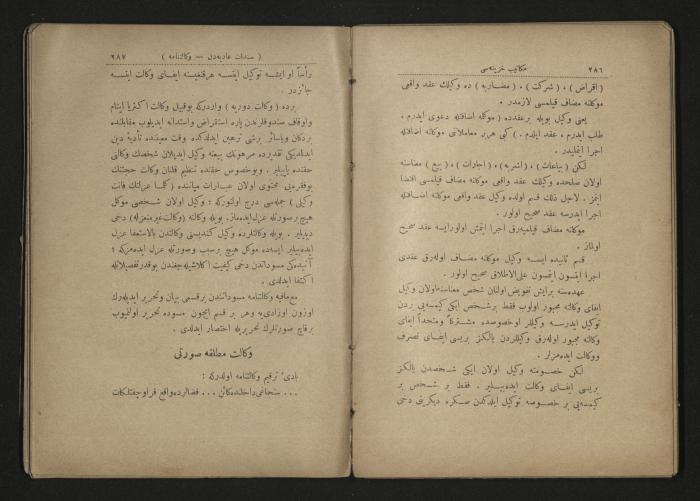 ٢٨٦
مكاتيب خزينه‌سى
( اقراض ) ، ( شركت ) ، ( مضاربه ) ده وكيلك عقد واقعى
موكلنه مضاف قيلمسى لازمدر .
يعنى وكيل بويله بر عقدده ( موكله اضافتله دعوى ايدرم .
طلب ايدرم ، عقد ايلدم . ) كبى هر بر معاملاتى موكلنه اضافتله
اجرا ايتمليدر .
لكن ( بياعات ) ، ( اشربه ) ، ( اجارات ) ، ( بيع ) معناسنه
اولان صلحده وكيلك عقد واقعى موكلنه مضاف قيلمسى اقتضا
ايتمز . لاجل ذلك قسم اولده وكيل عقد واقعى موكلنه اضافتله
اجرا ايدرسه عقد صحيح اولور .
موكلنه مضاف قيلميه‌رق اجرا ايتمش اولورايسه عقد صحيح
اولماز .
قسم ثانيده ايسه وكيل موكلنه مضاف اوله‌رق عقدى
اجرا ايتسون ايتمسون على الاطلاق صحيح اولور .
عهده‌سنه بر ايش تفويض اولنان شخص معناسنه اولان وكيل
ايفاى وكالته مجبور اولوب فقط بر شخص ايكى كيمسه‌يى بردن
توكيل ايدرسه وكيللر اوخصوصده مشتركاً ومتحداً ايفاى
وكالته مجبور اوله‌رق وكيللردن يالكز بريسى ايفاى تصرف
ووكالت ايده‌مزلر .
لكن خصومته وكيل اولان ايكى شخصدن يالكز
بريسى ايفاى وكالت ايده‌بيلير . فقط بر شخص بر
كيمسه‌يى بر خصوصه توكيل ايلدكدن صكره ديكرينى دخى
( سندات عاديه‌دن — وكالتنامه )
٢٨٧
رأساً او ايشه توكيل ايتسه هرقنغيسنه ايفاى وكالت ايتسه
جائزدر .
برده ( وكالت دوريه ) واردركه بوقبيل وكالت اكثريا ايتام
واوقاف صندوقلرندن پاره استقراض واستدانه ايديلوب مقابلنده
بر دكان وياسائر برشى ترهين ايدلدكده وقت معيننده تأديۀ دين
ايدلمديكى تقديرده مرهونك بيعنه وكيل ايديلان شخصك وكالتى
حقنده ياپيلير . وبوخصوص حقنده تنظيم قلنان وكالت حجتنك
بوفقره‌يى محتوى اولان عبارات ميانننده ( كلما عزلتك فانت
وكيلى ) جمله‌سى درج اولنورکه : وكيل اولان شخصى موكل
هيچ بر صورتله عزل ايده‌ماز . بويله وكالته ( وكالت غير منعزله ) دخى
ديبلير . بويله وكالتلرده وكيل كنديسنى وكالتدن بالاستعفا عزل
ايده‌بيلير ايسه‌ده موكل هيچ بر سبب وصورتله عزل ايده‌مزكه ؛
آتيده‌كى مسوداتدن دخى كيفيت اكلاشيله‌جغندن بوقدر تفصيلاتله
اكتفا ايدلدى .
مع‌مافيه وكالتنامه مسوداتندن بر قسمى بيان وتحرير ايديله‌رك
اوزون اوزادى‌يه وهر بر قسم ايچون مسوده تحرير اولنميوب
برقاچ صورتلرك تحريريله اختصار ايدلدى .
وكالت مطلقه صورتى
بادئ ترقيم وكالتنامه اولدركه :
... سنجاغى داخلنده كائن ... قضالرده واقع قرا وچفتلكات